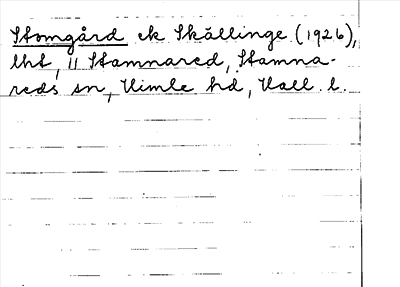 Stomgård ek Skällinge (1926),
lht, || Stamnared, Stamna-
reds sn, Himle hd, Hall. l.